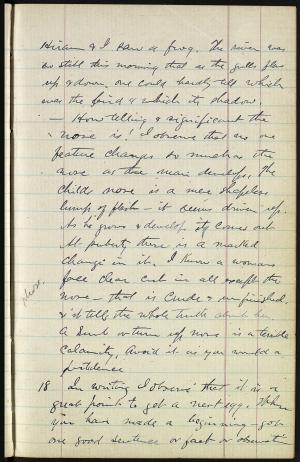 Hiram & I saw a frog. The river was
so still this morning that as the gulls flew
up & down one could hardly tell which
was the bird & which its shadow.
— How telling & significant the
nose is! I observe that no one
feature changes so much as the
nose as the man develops. The
childs nose is a mere shapeless
lump of flesh — it seems driven up.
As he grows & develops its comes out
At puberty there is a marked
change in it. I know a womans
face clear cut in all except the
nose — that is crude & unfinished.
& it tells the whole truth about her.
A dent or turn up nose is a terrible
calamity, avoid it as you would a
pestilence
18 In writing I observe that it is a
great point to get a nest egg. When
you have made a beginning got
one good sentence or fact or observation